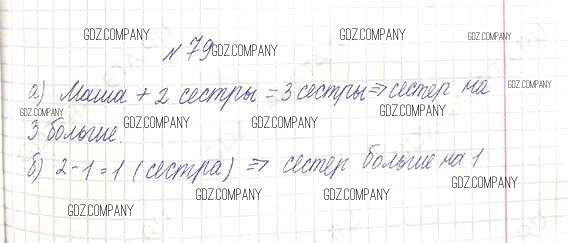 GDZ.COMPANY GDZ.COMPANY
№ 79 GDZ.COMPANY
а) Маша + 2 сестры = 3 сестры ⇒ сестер на GDZ.COMPANY
GDZ.COMPANY GDZ.COMPANY
3 больше. GDZ.COMPANY GDZ.COMPANY
б) 2-1=1 (сестра) ⇒ сестер больше на 1
GDZ.COMPANY GDZ.COMPANY GDZ.COMPANY
GDZ.COMPANY GDZ.COMPANY